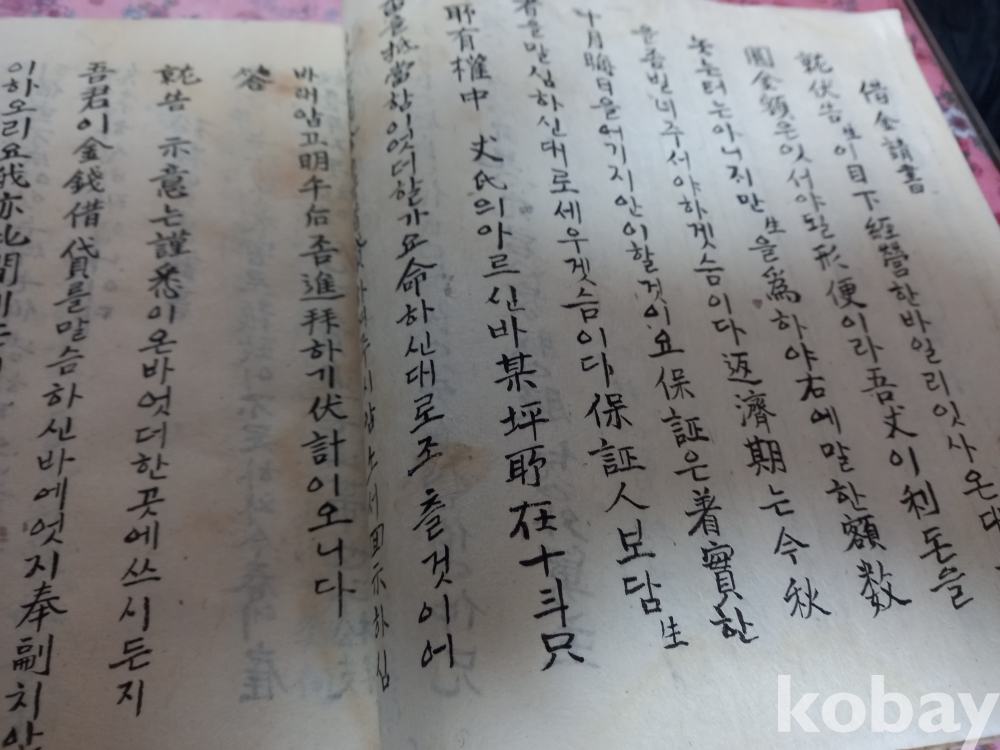 借金請書
就伏告生이目下經營한바일리잇사온대
圓金額은잇서야될形便이라吾丈이利돈을
놋는터는아니지만生을爲하야右에말한額数
을좀빌녀주서야하겟슴이다返濟期는今秋
十月晦日을어기지안이할것이요保証은着實한
者을말심하신대로세우겟슴이다保証人보담生
耶有權中 丈氏의아르신바某坪耶在十斗只
畓을抵當함이엇더한가요命하신대로조출것이어
주시압소서回示하심
바래압고明午后吾進拜하기伏計이오니다
答
就告 示意는謹悉이온바엇더한곳에쓰시든지
吾君이金錢借貸를말슴하신바에엇지奉副치안
이하오리요我亦此間
kobay